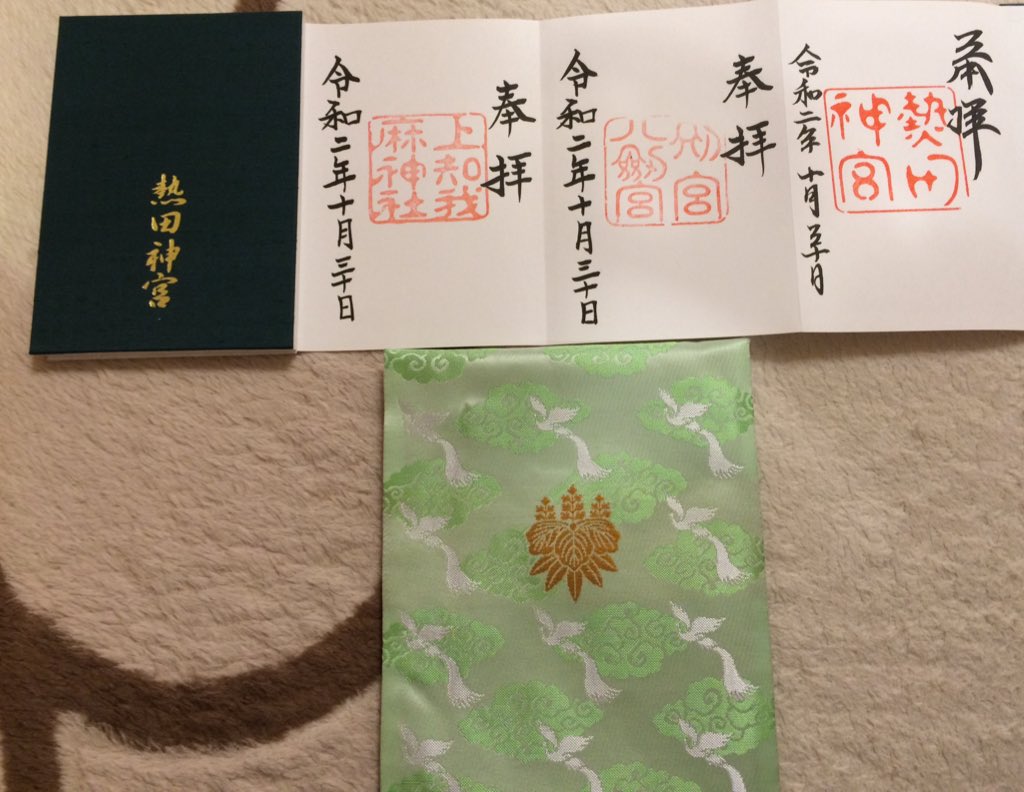 奉拝
熱田
神宮
令和二年十月三十日
奉拝
別宮
八劔宮
令和二年十月三十日
奉拝
上知我
麻神社
令和二年十月三十日
熱田神宮